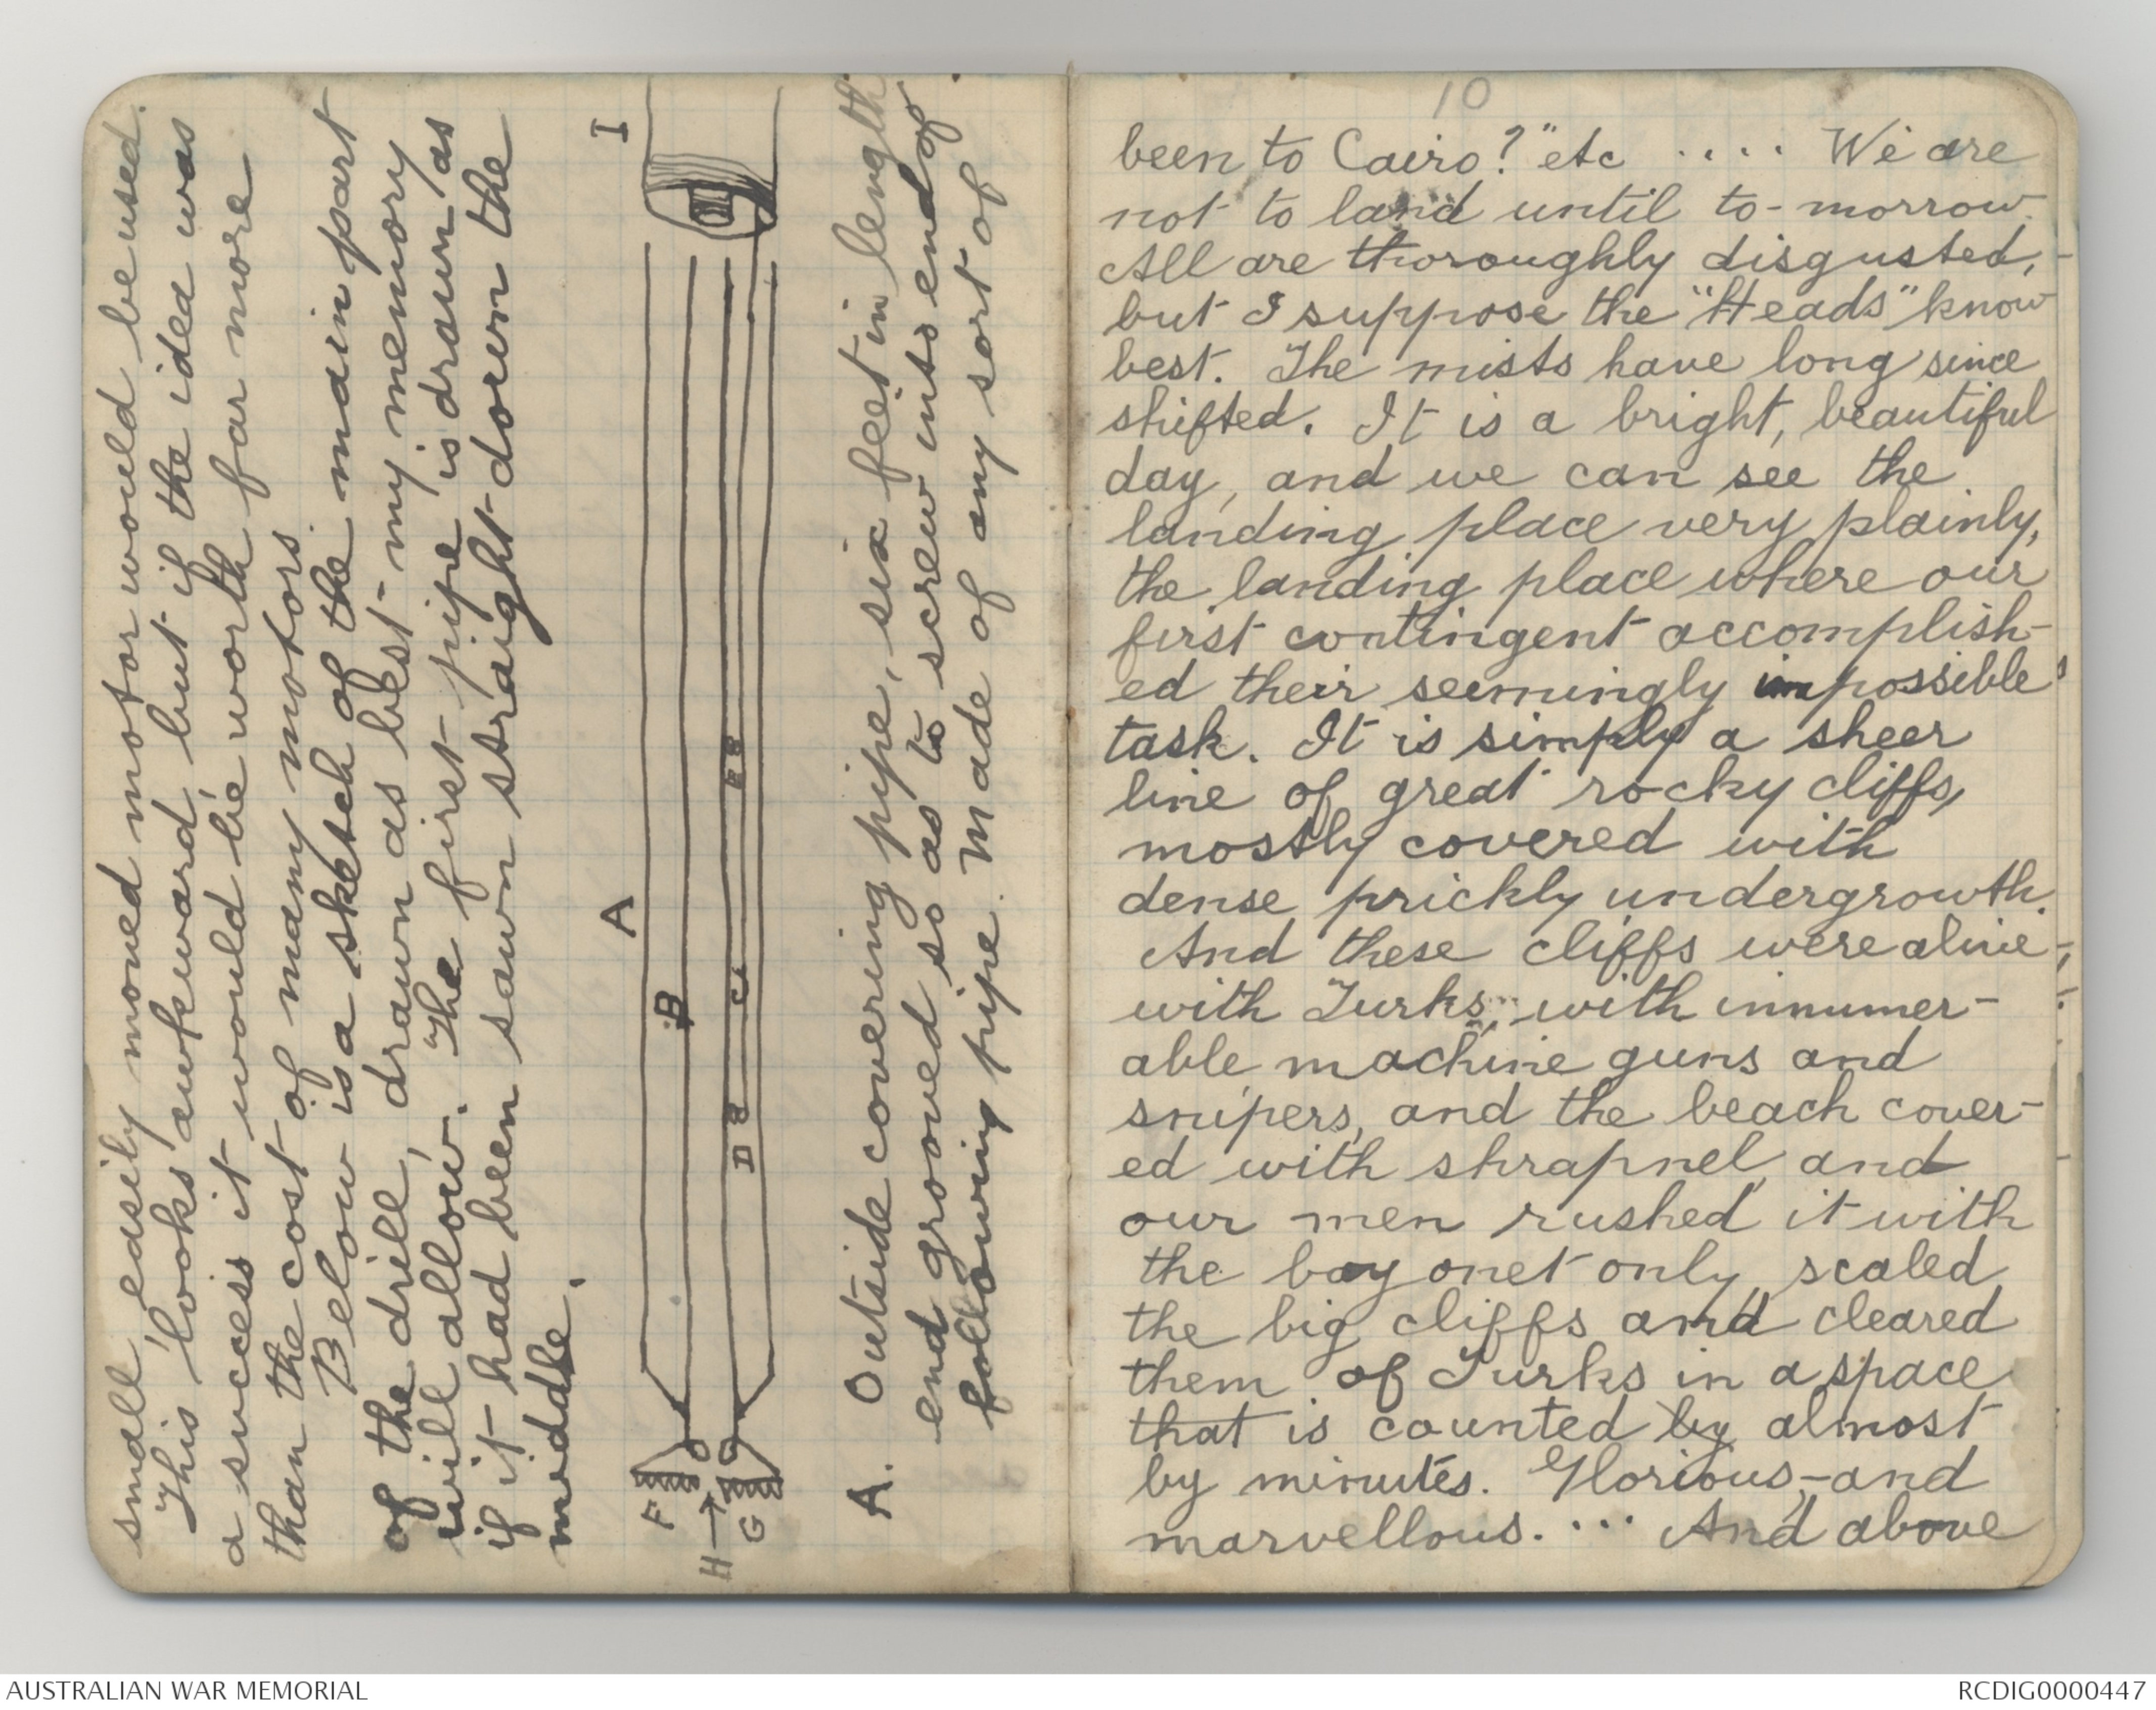 small, easily moned motor would be used.
This looks awkward, but if the idea was
a success it would be worth far more
than the cost of many motors.
Below is a sketch of the main part
of the drill, drawn as best my memory
will allow. The first pipe is drawn as
if it had been sawn straight down the
middle.
A
I
B
E
C
D
F
H
G
A. Outside covering pipe, six feet in length
end grooved so as to screw into end of
following pipe. Made of any sort of
10
been to Cairo?" etc .... We are
not to land until to-morrow.
All are thoroughly disgusted,
but I suppose the "Heads" know
best. The mists have long since
shifted. It is a bright, beautiful
day, and we can see the
landing place very plainly,
the landing place where our
first contingent accomplish-
ed their seemingly impossible
task. It is simply a sheer
line of great rocky cliffs,
mostly covered with
dense prickly undergrowth.
And these cliffs were alive
with Turks, with innumer-
able machine guns and
snipers, and the beach cover-
ed with shrapnel, and
our men rushed it with
the bayonet only, scaled
the big cliffs and cleared
them of Turks in a space
that is counted by almost
by minutes. Glorious, and
marvellous. ... And above
AUSTRALIAN WAR MEMORIAL
RCDIG0000447